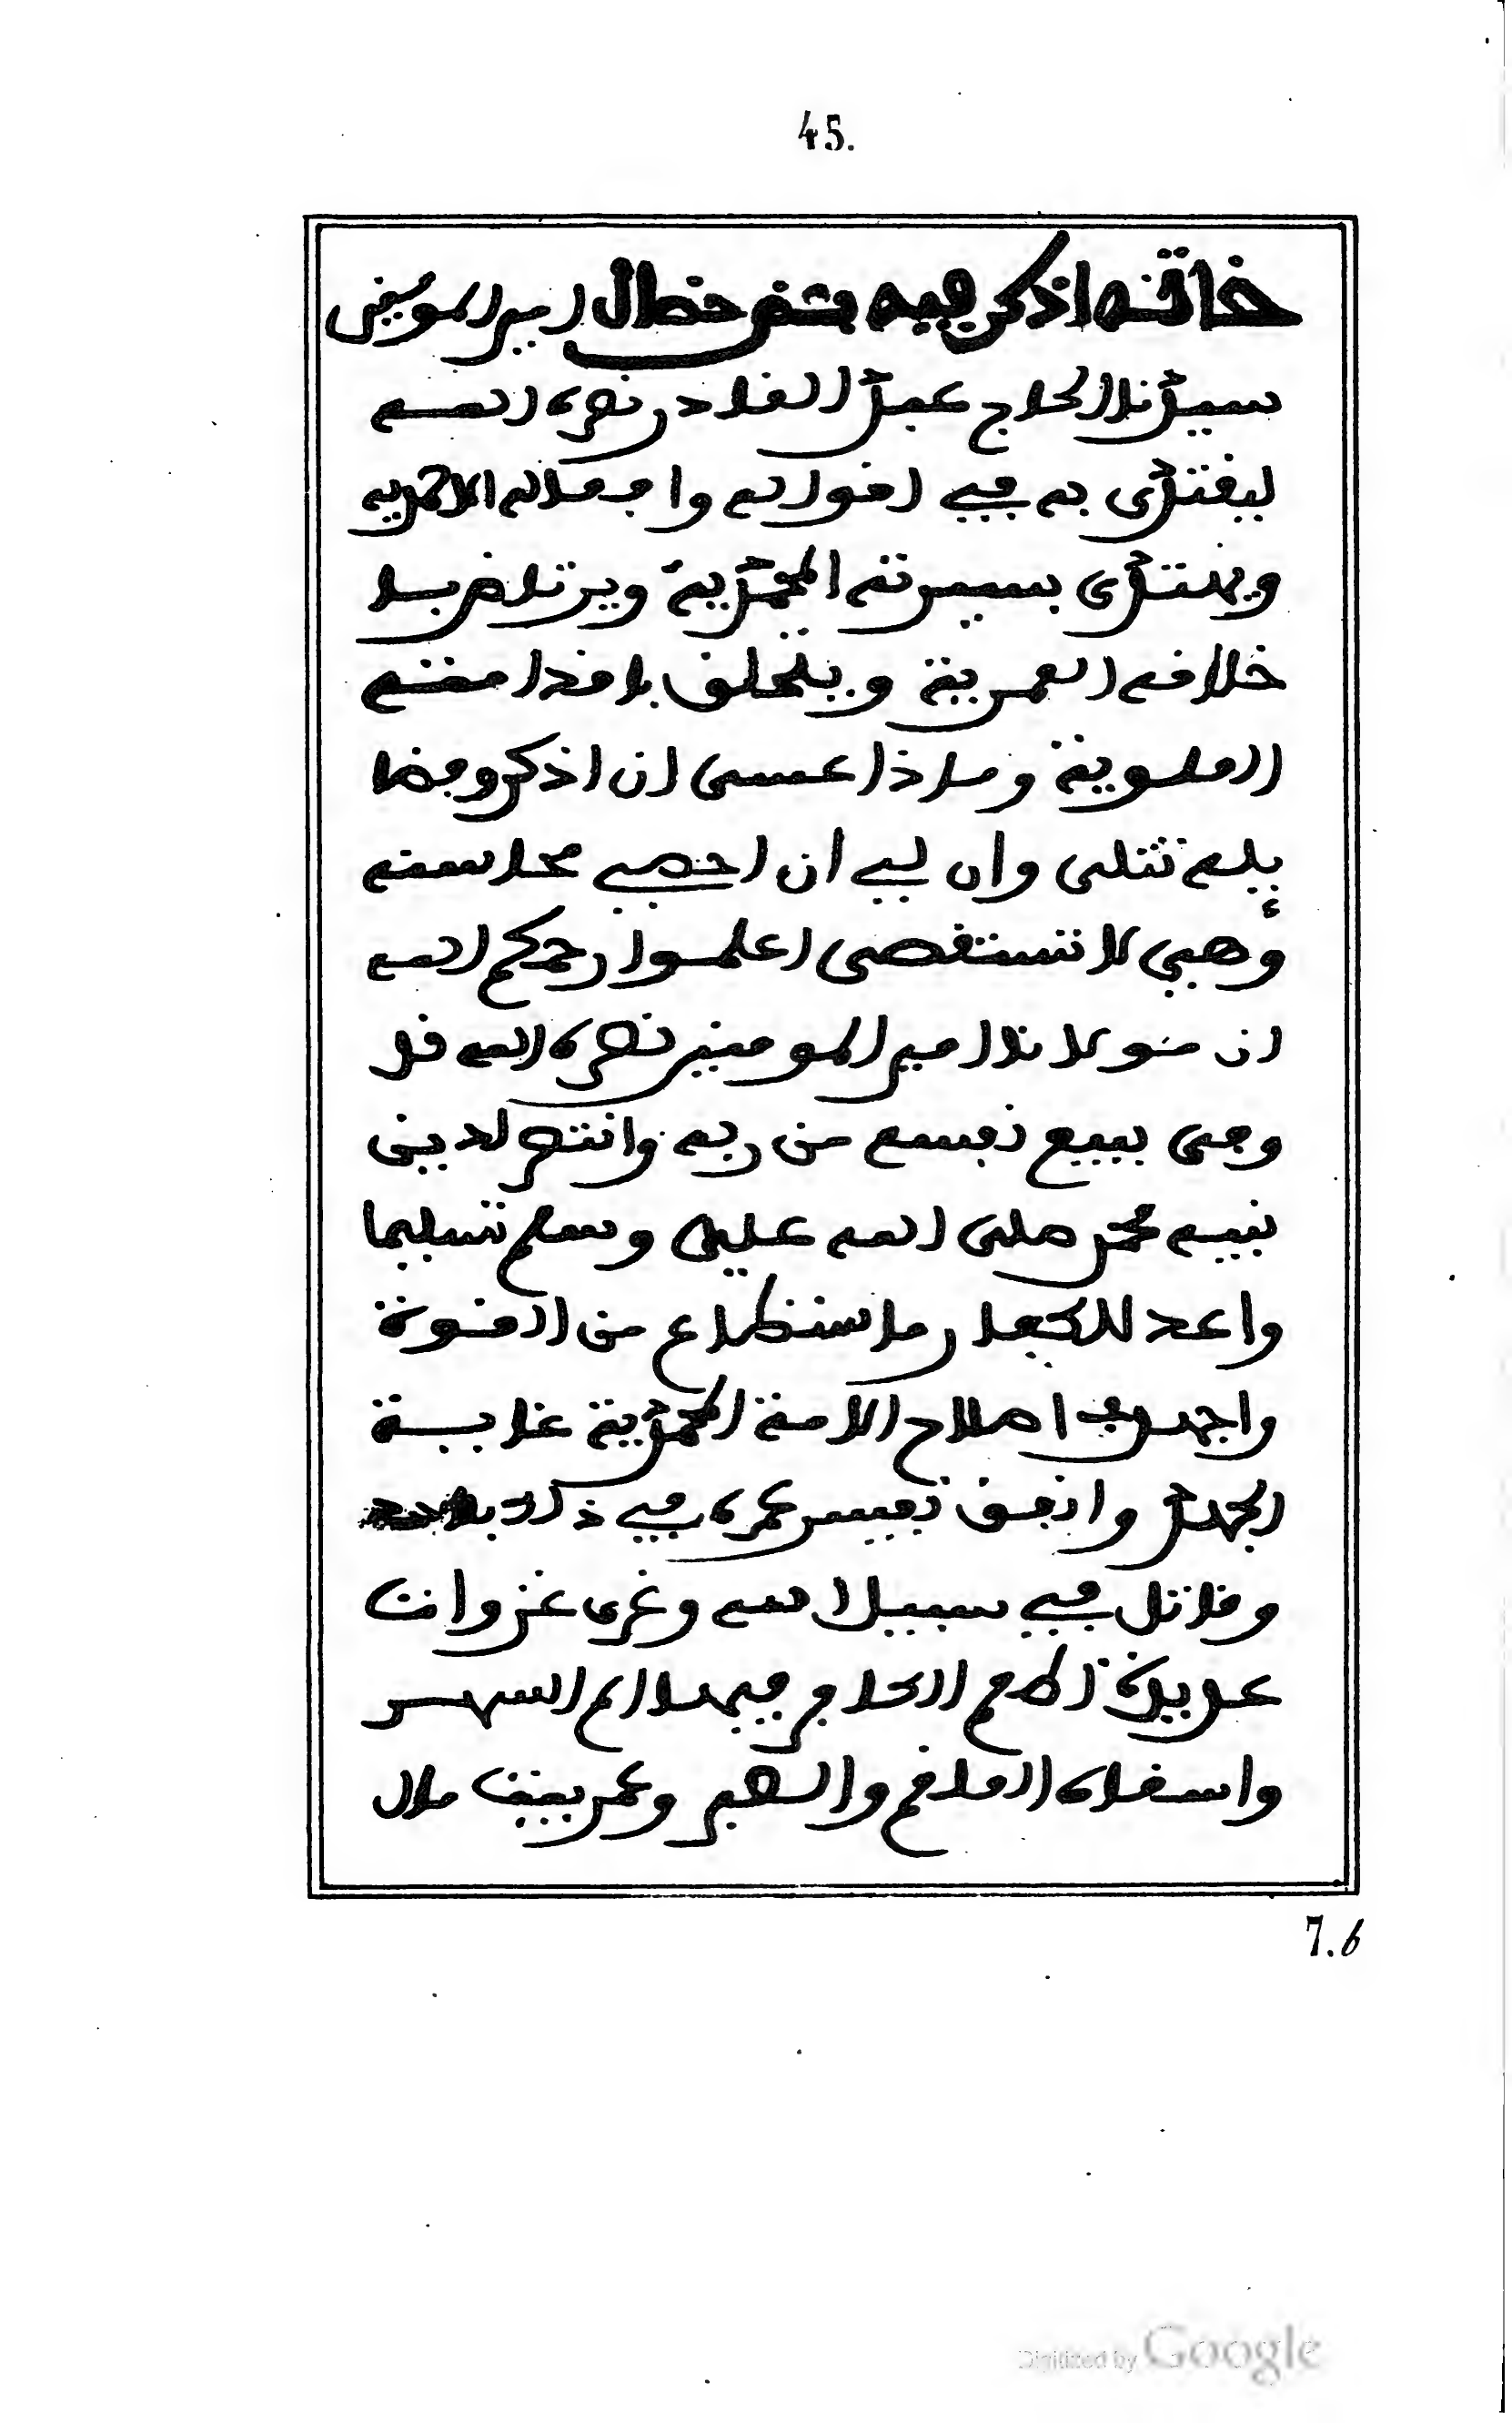 45.
خاتمة اذكر فيه بعض خصال امير المومنين
سيدنا الحاج عبد القادر نصره الله
ليقتدى به في اقواله وافعاله الاحمدية
ويهتدى بسيرته المحمدية ويرتاض بـ
خلافه العمرية ويتخلق باقدامته
العلوية وماذا عسى ان اذكر وفضا
يله تتلى وان لي ان احصي محاسنه
وهي لا تستقصى اعلموا رحمكم الله
ان مولانا امير المومنين نصره الله قد
وفى ببيع نفسه من ربه وانتصر لدين
نبيه محمد صلى الله عليه وسلم تسليما
واعد للكفار ما استطاع من القوة
واجهد في اصلاح الامة المحمدية غاية
الجهد وانفق نفيس عمره في ذلك
وقاتل في سبيل الله وغزى غزوات
عديدة اطعم الكافر فيها الم السهر
واسقاه العلقم والصبر وعمر بيت مال
7.6
Digitized by Google